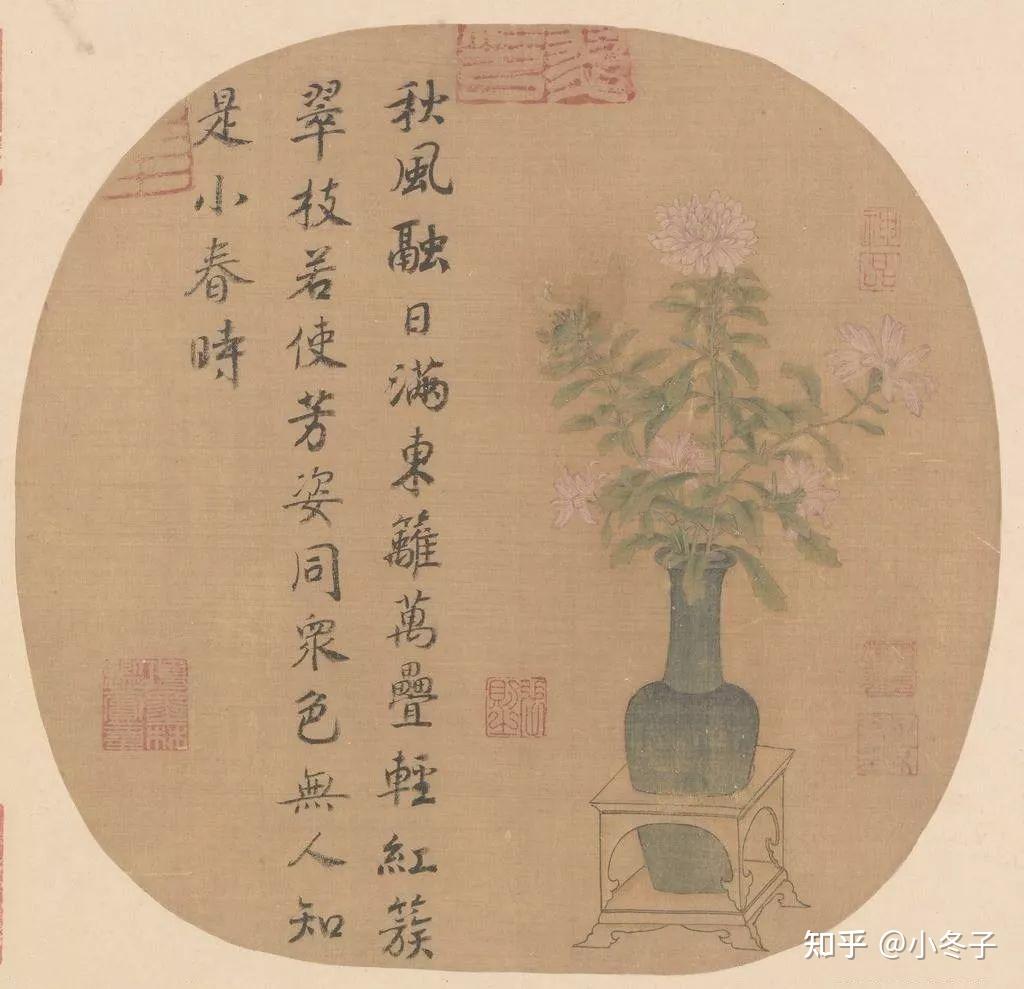 秋風融日滿東籬萬疊輕紅簇
翠枝若使芳姿同衆色無人知
是小春時
知乎 @小冬子